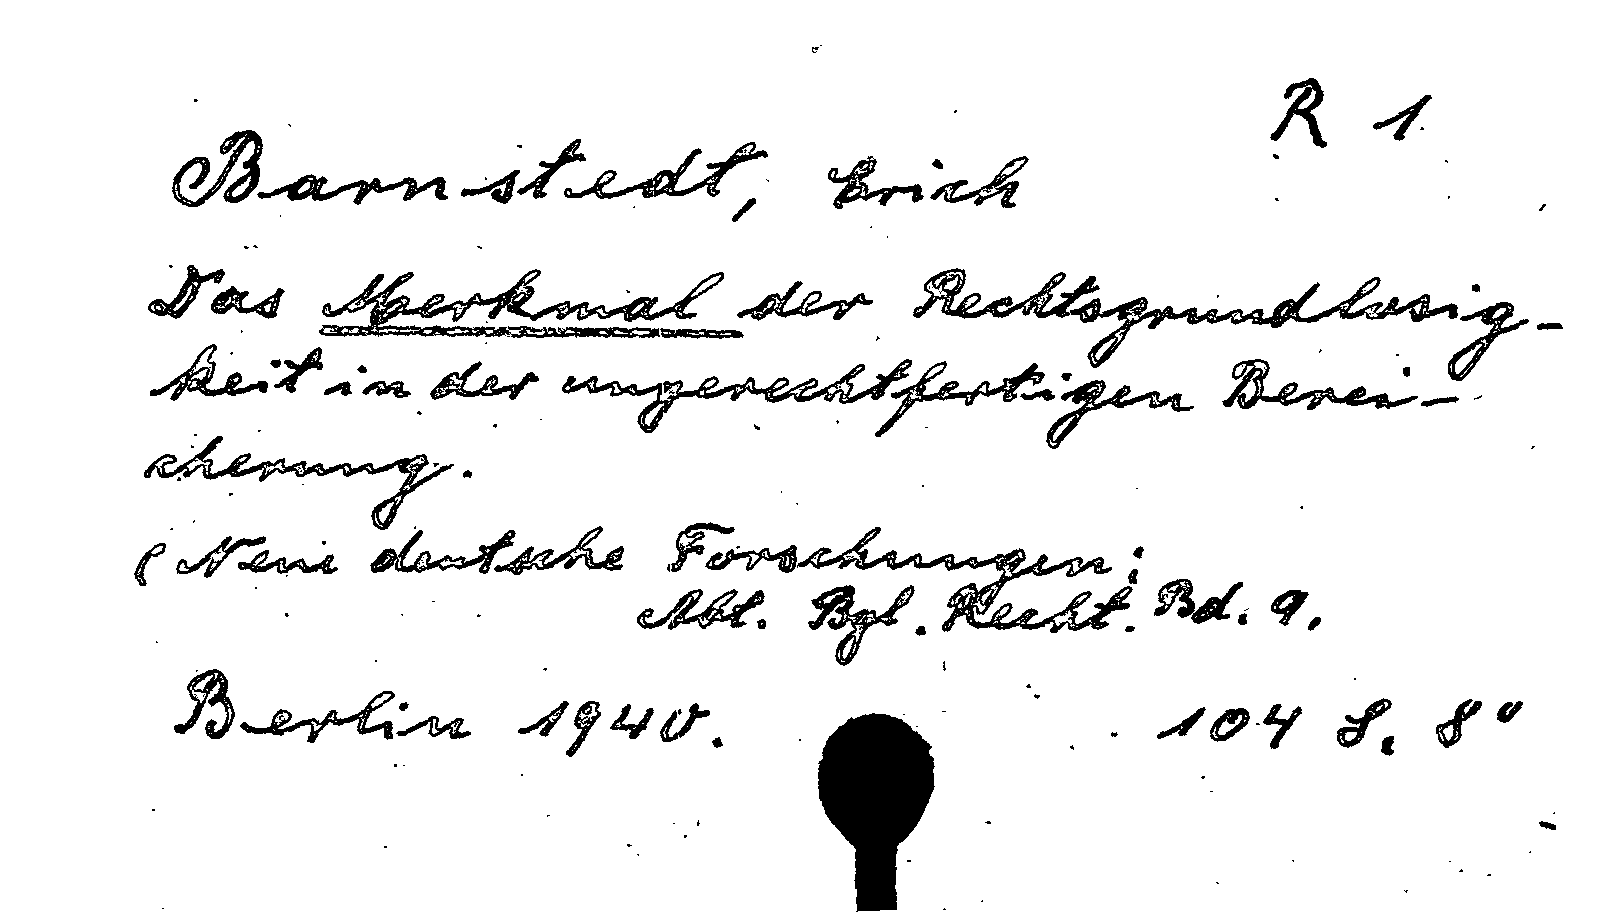 R 1
Barnstedt, Erich
Das Merkmal der Rechtsgrundlosig-
keit in der ungerechtfertigen Berei-
cherung.
(Neue deutsche Forschungen;
Abt. Bgl. Recht. Bd. 9.
Berlin 1940. 104 S. 8°